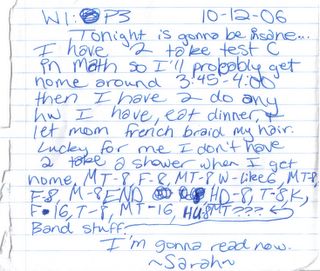 W1: P3 10-12-06
Tonight is gonna be insane...
I have 2 take test C
in math so I'll probably get
home around 3:45-4:00
then I have 2 do any
hw I have, eat dinner, &
let mom french braid my hair.
Lucky for me I don't have
2 take a shower when I get
home, MT-8, F-8, MT-8 W-likes, MT-8,
F-8, M-8 END HD-8, T-8, K,
F-16, T-8, MT-16, HU-8 MT???
Band stuff.
I'm gonna read now.
~Sarah~